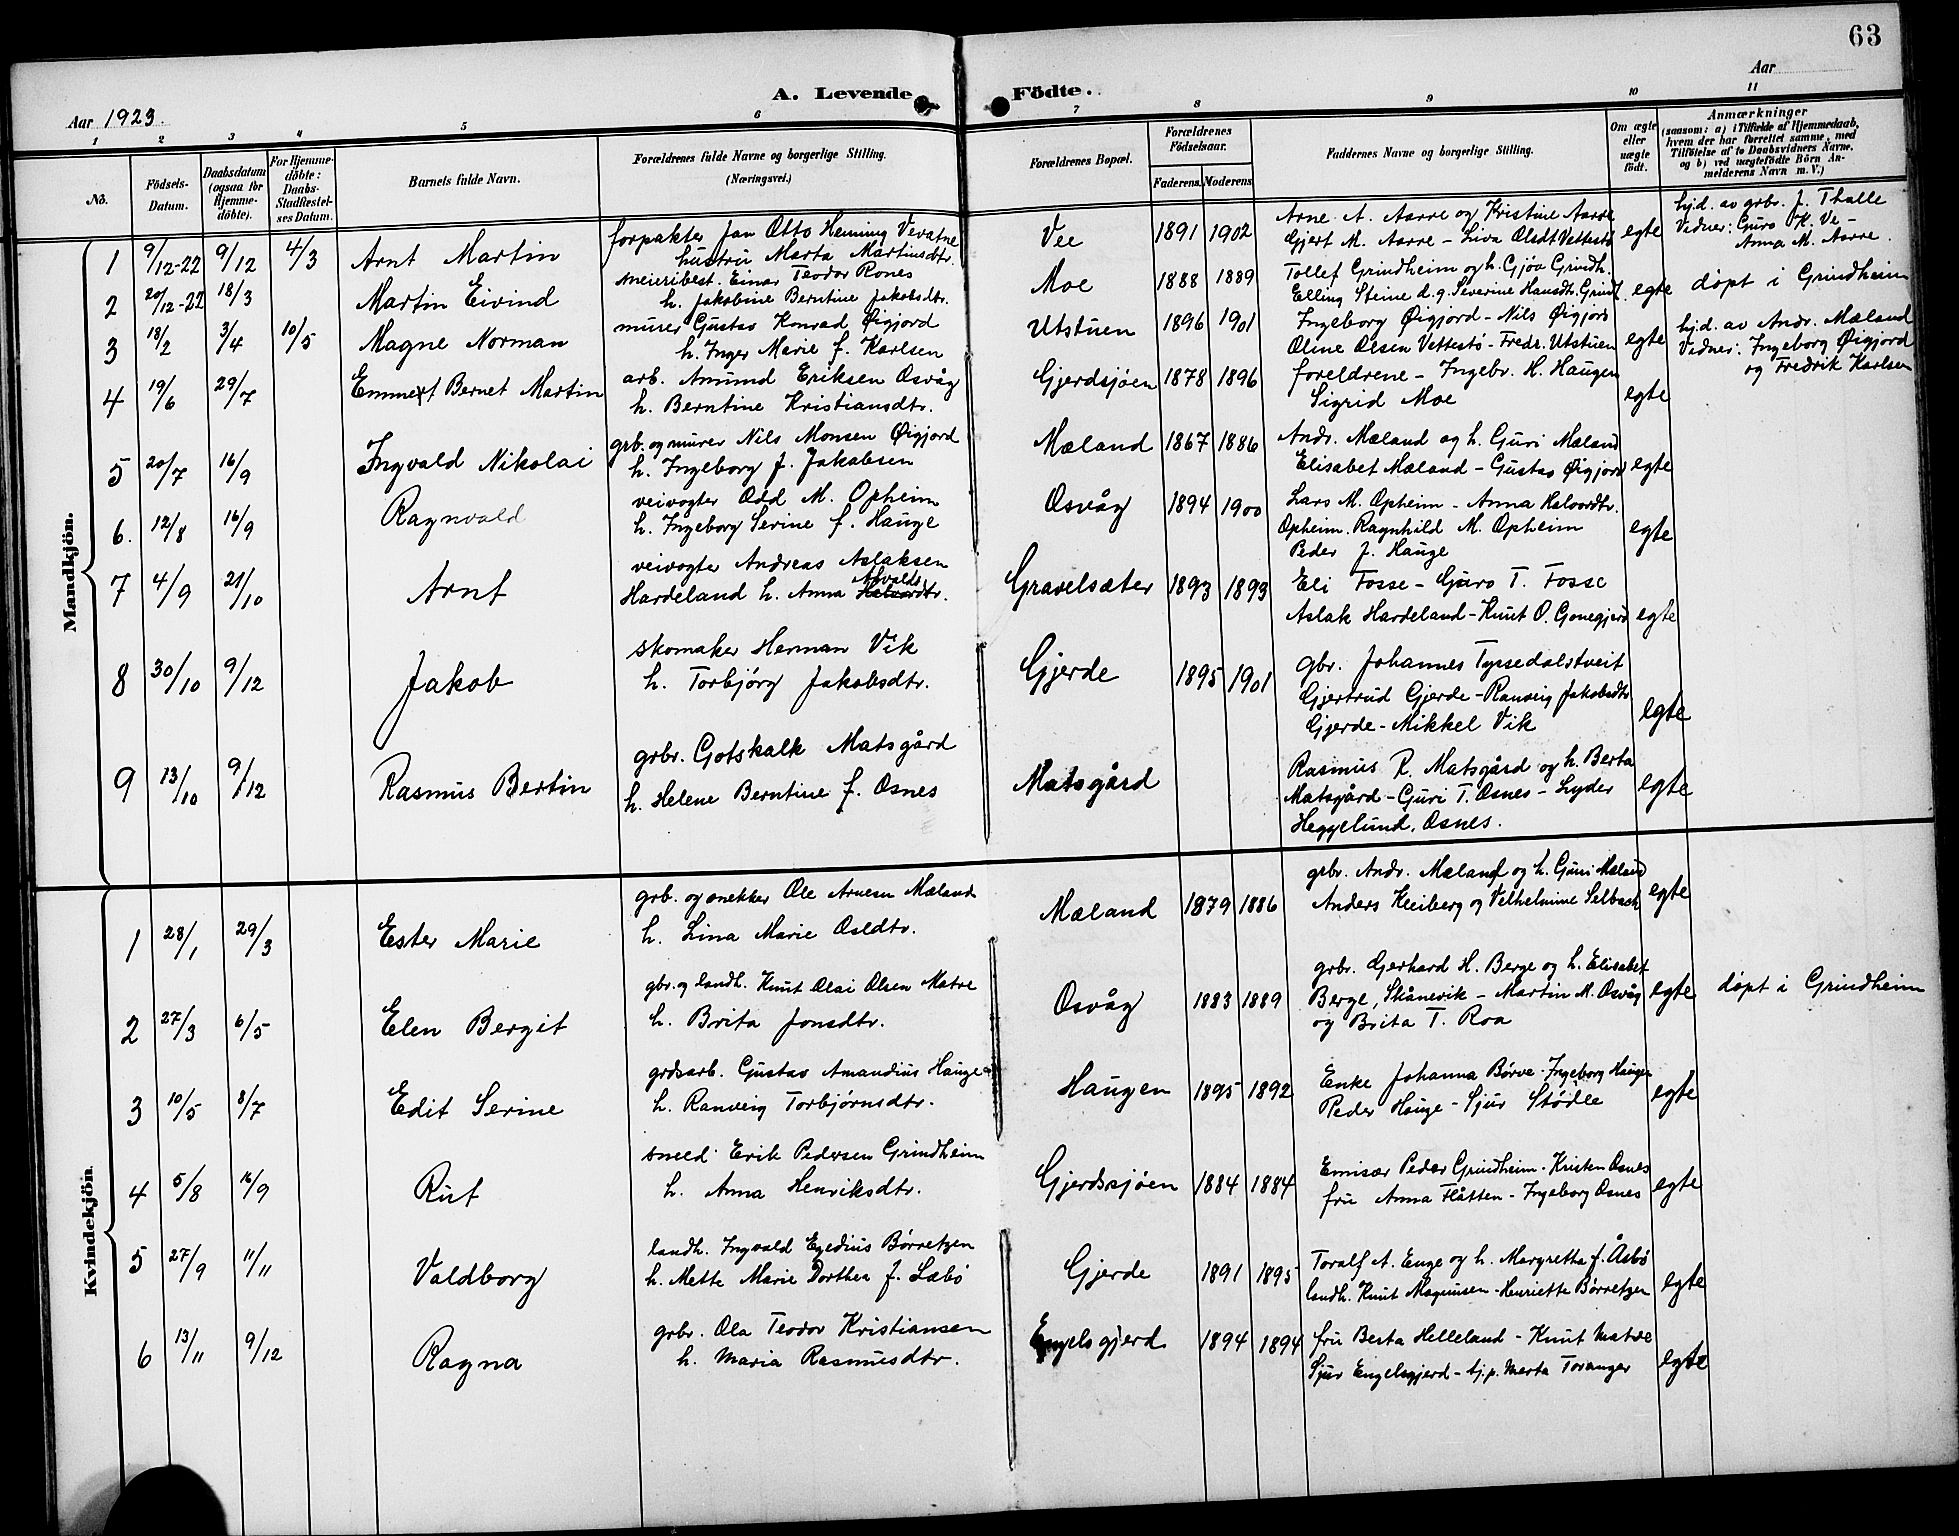 63
Aar 1923.
A. Levende Födte.
Aar
1 2 3 4 5 6 7 8 9 10 11
No.
Födsels-Datum.
Daabsdatum (ogsaa for Hjemme-döbte).
For Hjemme-döbte: Daabs-Stadfæstel-ses Datum.
Barnets fulde Navn.
Forældrenes fulde Navne og borgerlige Stilling.
(Næringsvei.)
Forældrenes Bopæl.
Forældrenes Födselsaar.
Faderens. Moderens.
Faddernes Navne og borgerlige Stilling.
Om ægte eller uægte födt.
Anmærkninger
(saasom: a) i Tilfælde af Hjemmedaab, hvem der har forrettet samme, med Tilföielse af to Daabsvidners Navne, og b) ved uægtefödte Börn Anmelderens Navn m. V.)
Mandkjön.
1 9/12-22 9/12 4/3 Arnt Martin
forpakter Jan Otto Henning Vevatne
hustru Marta Martinsdtr.
Vee 1891 1902
Arne A. Aarre og Kristine Aarre
Gjert M. Aarre - Liva Olsdt Vettestö
egte
hjd. av grbr. J. Thalle
Vidner: Guro K. Ve -
Anna M. Aarre.
2 20/12-22 18/3 Martin Eivind
meieribest. Einar Teodor Rones
h. Jakobine Berntine Jakobsdtr.
Moe 1888 1889
Tollef Grindheim og h. Gjøa Grindh.
Elling Steine d.g. Severine Hansdtr. Grindh.
egte døpt i Grindheim
3 18/2 3/4 10/5 Magne Norman
murer Gustav Konrad Øigjord
h. Inger Marie f. Karlsen
Utstuen 1896 1901
Ingeborg Øigjord - Nils Øigjord
Oline Olsen Vettestö - Fredr. Utstuen
egte
hjd. av Andr. Mæland
Vidner: Ingeborg Øigjord
og Fredrik Karlsen
4 19/6 29/7 Emmert Bernet Martin
arb. Amund Eriksen Osvåg
h. Berntine Kristiansdtr.
Gjerdsjøen 1878 1896
foreldrene - Ingebr. H. Haugen
Sigrid Moe
egte
5 20/7 16/9 Ingvald Nikolai
grb. og murer Nils Monsen Øigjord
h. Ingeborg J. Jakobsen
Mæland 1867 1886
Andr. Mæland og h. Guri Mæland
Elisabet Mæland - Gustav Øigjord
egte
6. 12/8 16/9 Ragnvald
veivogter Odd M. Opheim
h. Ingeborg Serine f. Hauge
Osvåg 1894 1900
Lars M. Opheim - Anna Halvordtr.
Opheim. Ragnhild M. Opheim
Peder J. Hauge
egte
7 4/9 21/10 Arnt
veivogter Andreas Aslaksen
Hardeland h. Anna Halvordtr.
Gravelsæter 1893 1893
Eli Fosse - Guro T. Fosse
Aslak Hardeland - Knut O. Gonegjerd
egte
8 30/10 9/12 Jakob
skomaker Herman Vik
h. Torbjørg Jakobsdtr.
Gjerde 1895 1901
gbr. Johannes Tyssedalstveit
Gjertrud Gjerde - Ranveig Jakobsdtr
Gjerde - Mikkel Vik
egte
9 13/10 9/12 Rasmus Bertin
grbr. Gotskalk Matsgård
h. Helene Berntine f. Osnes
Matsgård
Rasmus R. Matsgård og h. Berta
Matsgård - Guri T. Osnes - Lyder
Heggelund, Osnes.
egte
Kvindekjön.
1 28/1 29/3 Ester Marie
grb. og snekker Ole Arnesen Mæland
h. Lina Marie Osldtr.
Mæland 1879 1886
grbr. Andr. Mæland og h. Guri Mæland
Anders Heiberg og Velhelmine Selbach
egte
2 27/3 6/5 Elen Bergit
gbr. og landh. Knut Olai Olsen Matre
h. Brita Jonsdtr.
Osvåg 1883 1889
grbr. Gerhard H. Berge og h. Elisabet
Berge, Skånevik - Martin M. Osvåg
og Brita T. Roa
egte døpt i Grindheim
3 10/5 8/7 Edit Serine
grdsarb. Gustav Amandius Haugen
h. Ranveig Torbjørnsdtr.
Haugen 1895 1892
Enke Johanna Børve - Ingeborg Haugen
Peder Hauge - Sjur Stødle
egte
4 5/8 16/9 Rut
smed Erik Pedersen Grindheim
h. Anna Henriksdtr.
Gjerdsjøen 1884 1884
Emisær Peder Grindheim - Kristen Osnes
fru Anna Flåtten - Ingeborg Osnes
egte
5 27/9 11/11 Valdborg
landh. Ingvald Egedius Børretzen
h. Mette Marie Dorthea f. Læbø
Gjerde 1891 1895
Toralf A. Enge og h. Margretha f. Åsbø
landh. Knut Magnusen - Henriette Børretzen
egte
6 13/11 9/12 Ragna
grbr. Ola Teodor Kristiansen
h. Maria Rasmusdtr.
Engelsgjerd 1894 1894
fru Berta Helleland - Knut Matre
Sjur Engelsgjerd - tj.p. Marta Toranger
egte